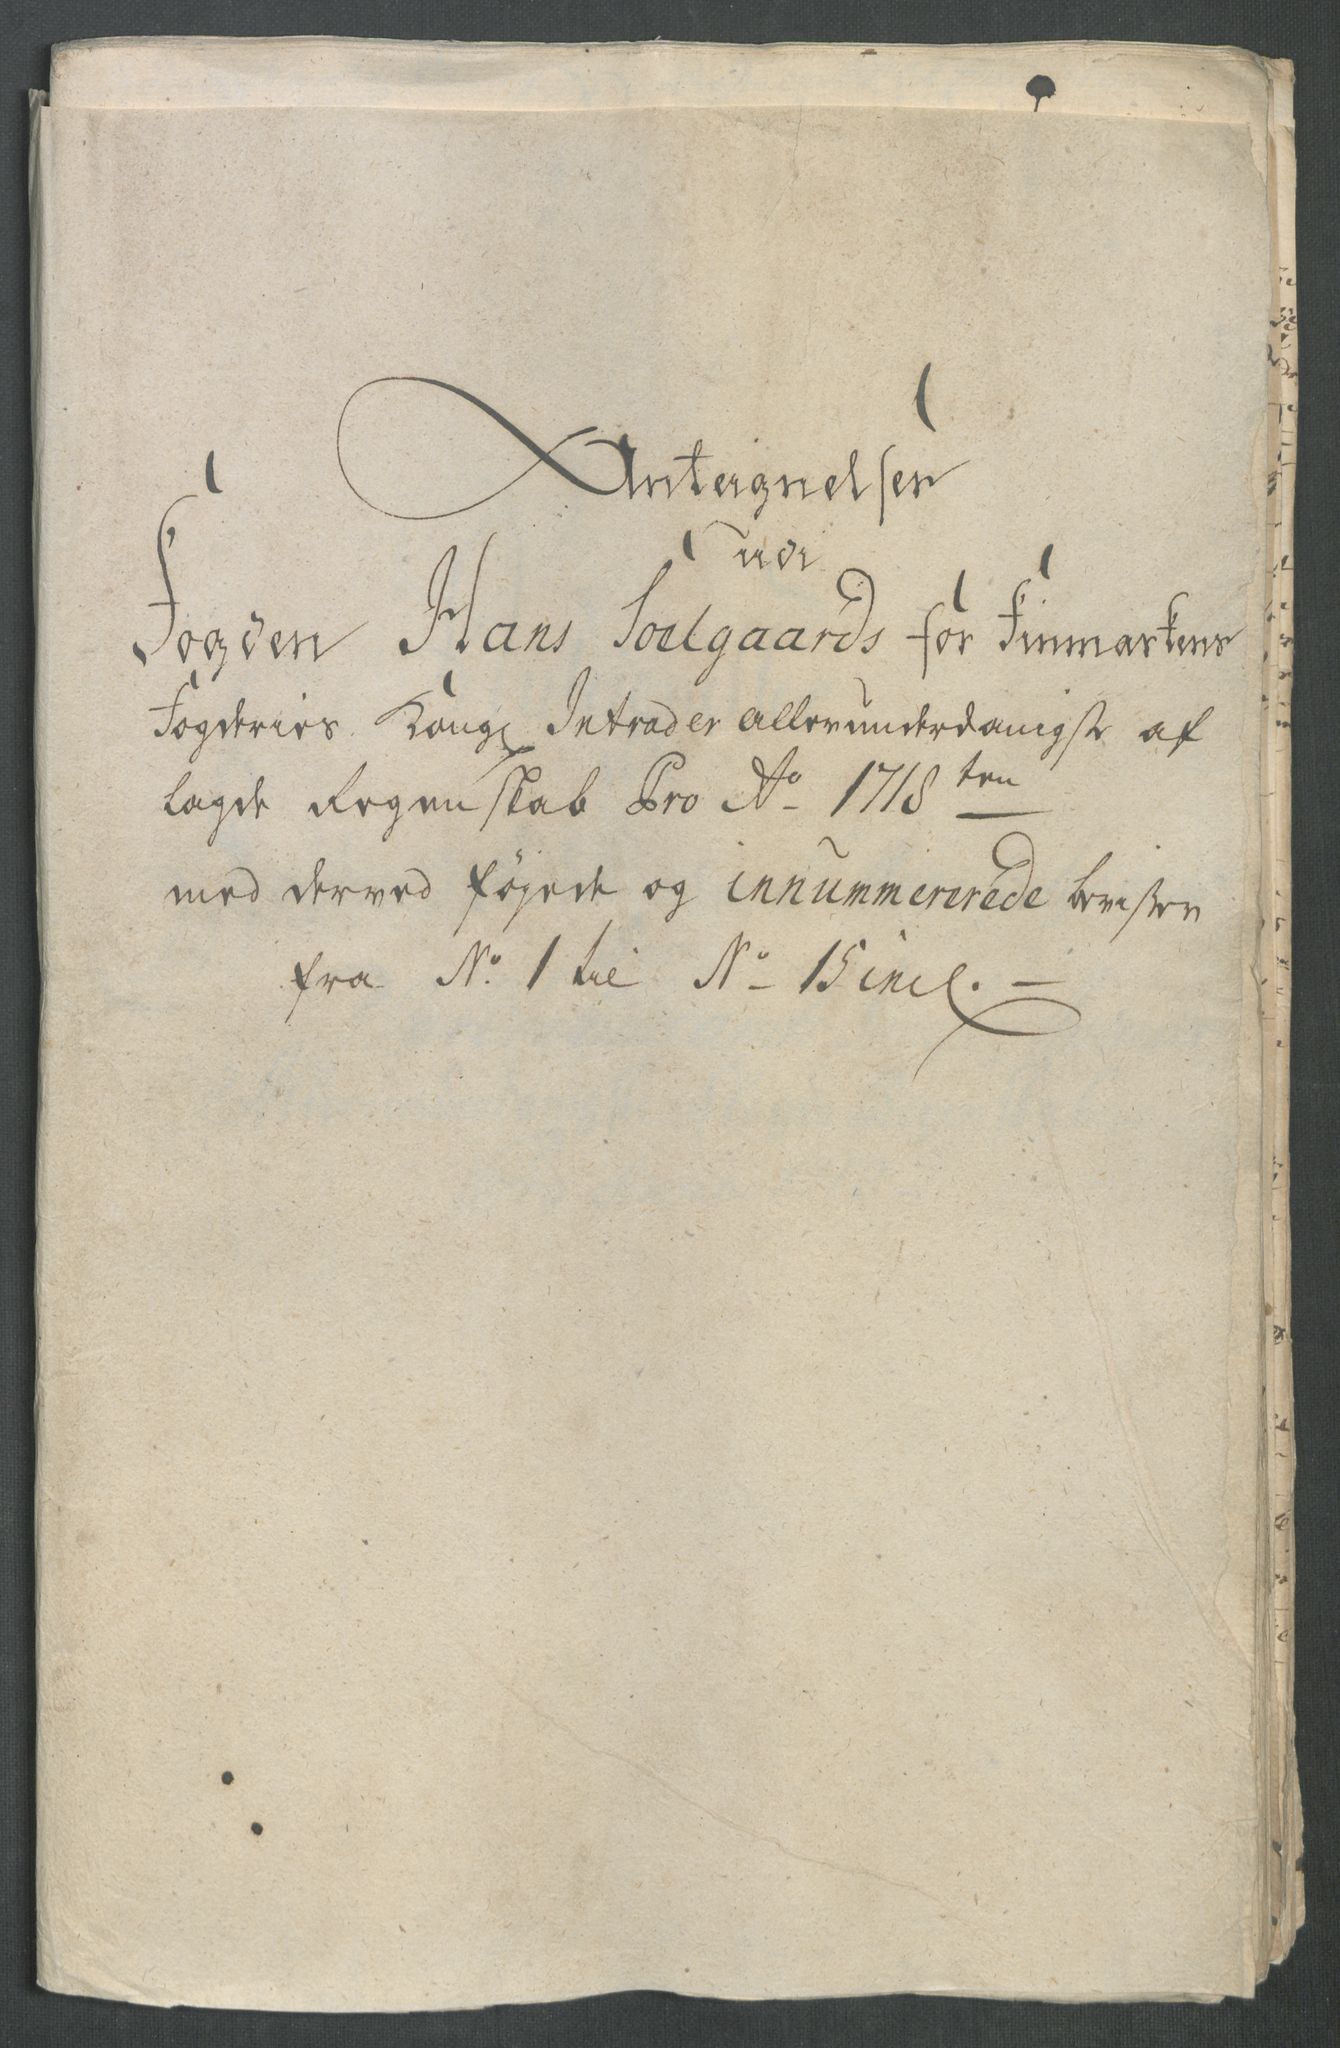 Antegnelser
udi
Fogden Hans Soelgaards for Finmarkens
Fogderies Kongl Intrader allerunderdanigst af
lagde Regenskab Pro Ao 1718 ten
med derved föyede og innummererede beviser
fra No. 1 til No 15 incl.